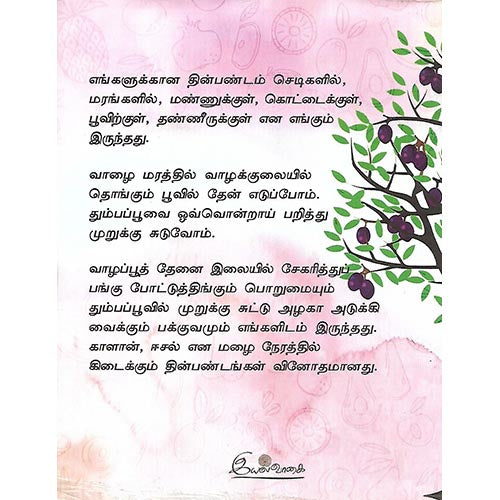 எங்களுக்கான தின்பண்டம் செடிகளில்,
மரங்களில், மண்ணுக்குள், கொட்டைக்குள்,
பூவிற்குள், தண்ணீருக்குள் என எங்கும்
இருந்தது.
வாழை மரத்தில் வாழக்குலையில்
தொங்கும் பூவில் தேன் எடுப்போம்.
தும்பப்பூவை ஒவ்வொன்றாய் பறித்து
முறுக்கு சுடுவோம்.
வாழப்பூத் தேனை இலையில் சேகரித்துப்
பங்கு போட்டுத்திங்கும் பொறுமையும்
தும்பப்பூவில் முறுக்கு சுட்டு அழகா அடுக்கி
வைக்கும் பக்குவமும் எங்களிடம் இருந்தது.
காளான், ஈசல் என மழை நேரத்தில்
கிடைக்கும் தின்பண்டங்கள் வினோதமானது.
இயல்வாகை